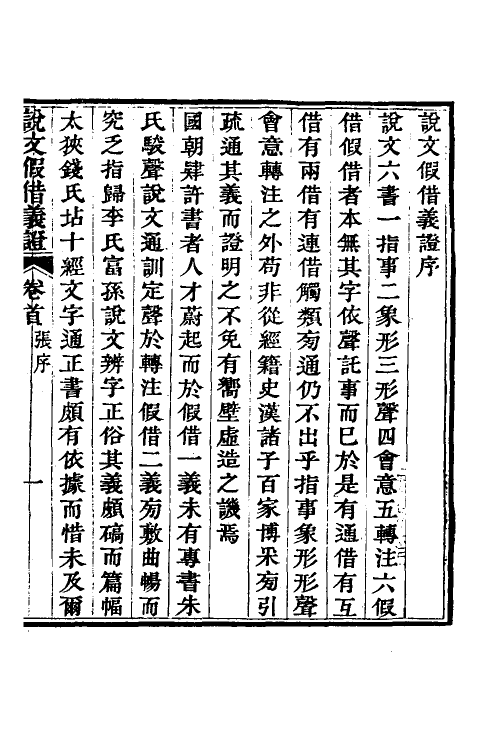 說文假借義證序
說文六書一指事二象形三形聲四會意五轉注六假
借假借者本無其字依聲託事而已於是有通借有互
借有兩借有連借觸類㫄通仍不出乎指事象形形聲
會意轉注之外苟非從經籍史漢諸子百家博采㫄引
疏通其義而證明之不免有嚮壁虛造之譏焉
國朝肄許書者人才蔚起而於假借一義未有專書朱
氏駿聲說文通訓定聲於轉注假借二義㫄敷曲暢而
究乏指歸李氏富孫說文辨字正俗其義頗碻而篇幅
太狹錢氏坫十經文字通正書頗有依據而惜未及爾
說文假借義證 卷首 張序 一